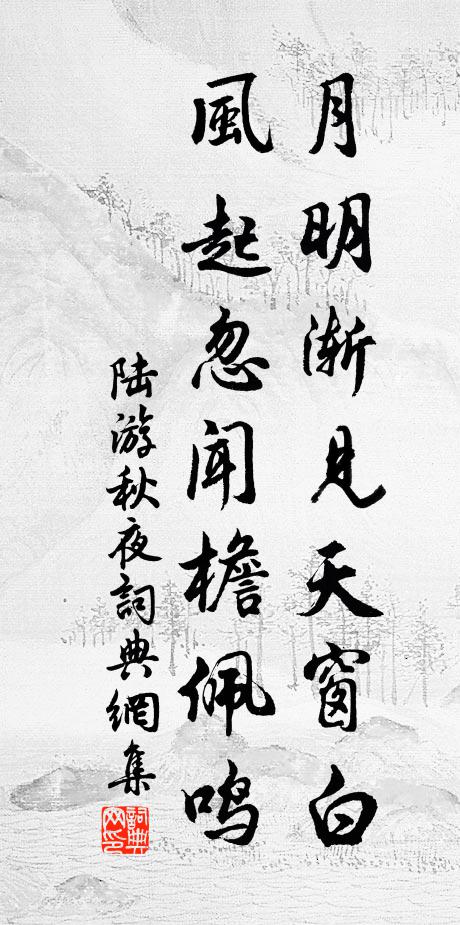 月明渐見天窗白
風起忽闻檐佩鸣
陆游秋夜詞典網集
詞典网印